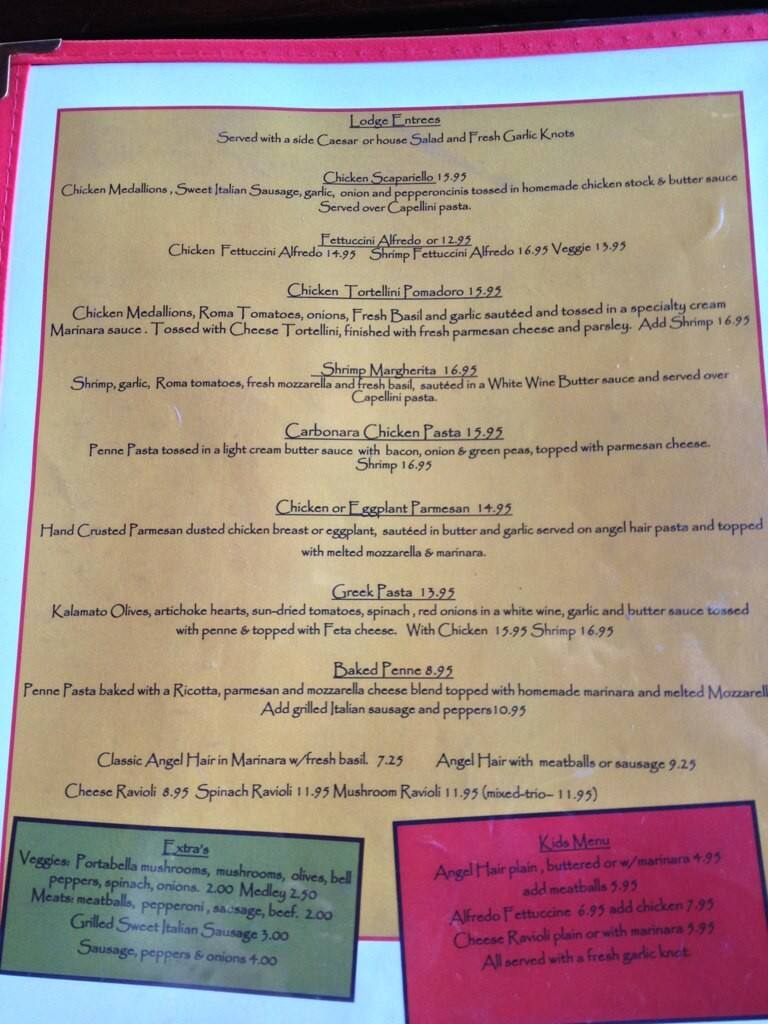 Lodge Entrees
Served with a side Caesar or house Salad and Fresh Garlic Knots
Chicken Scapariello 15.95
Chicken Medallions, Sweet Italian Sausage, garlic, onion and pepperoncinis tossed in homemade chicken stock & butter sauce
Served over Capellini pasta.
Fettuccini Alfredo or 12.95
Chicken Fettuccini Alfredo 14.95 Shrimp Fettuccini Alfredo 16.95 Veggie 13.95
Chicken Tortellini Pomadoro 15.95
Chicken Medallions, Roma Tomatoes, onions, Fresh Basil and garlic sautéed and tossed in a specialty cream
Marinara sauce. Tossed with Cheese Tortellini, finished with fresh parmesan cheese and parsley. Add Shrimp 16.95
Shrimp Margherita 16.95
Shrimp, garlic, Roma tomatoes, fresh mozzarella and fresh basil, sautéed in a White Wine Butter sauce and served over
Capellini pasta.
Carbonara Chicken Pasta 15.95
Penne Pasta tossed in a light cream butter sauce with bacon, onion & green peas, topped with parmesan cheese.
Shrimp 16.95
Chicken or Eggplant Parmesan 14.95
Hand Crusted Parmesan dusted chicken breast or eggplant, sautéed in butter and garlic served on angel hair pasta and topped
with melted mozzarella & marinara.
Greek Pasta 13.95
Kalamato Olives, artichoke hearts, sun-dried tomatoes, spinach, red onions in a white wine, garlic and butter sauce tossed
with penne & topped with Feta cheese. With Chicken 15.95 Shrimp 16.95
Baked Penne 8.95
Penne Pasta baked with a Ricotta, parmesan and mozzarella cheese blend topped with homemade marinara and melted Mozzarell
Add grilled Italian sausage and peppers10.95
Classic Angel Hair in Marinara w/fresh basil. 7.25 Angel Hair with meatballs or sausage 9.25
Cheese Ravioli 8.95 Spinach Ravioli 11.95 Mushroom Ravioli 11.95 (mixed-trio- 11.95)
Extra's
Veggies: Portabella mushrooms, mushrooms, olives, bell
peppers, spinach, onions. 2.00 Medley 2.50
Meats: meatballs, pepperoni, sausage, beef. 2.00
Grilled Sweet Italian Sausage 3.00
Sausage, peppers & onions 4.00
Kids Menu
Angel Hair plain, buttered or w/marinara 4.95
add meatballs 5.95
Alfredo Fettuccine 6.95 add chicken 7.95
Cheese Ravioli plain or with marinara 5.95
All served with a fresh garlic knot.